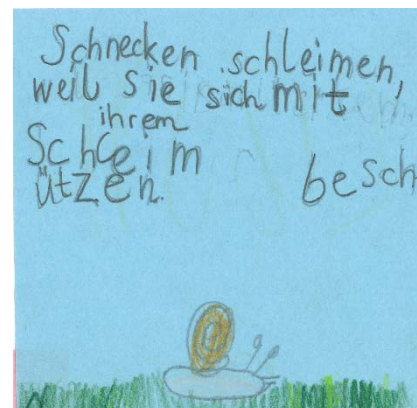 Schnecken schleimen,
weil sie sich mit
ihrem
Schleim besch
ützen.